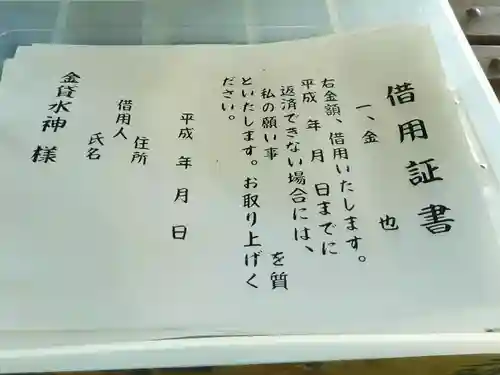 借用証書
一、金　　　　也
右金額、借用いたします。
平成　年　月　日までに
返済できない場合には、
私の願い事　　　　を質
といたします。お取り上げく
ださい。
平成　年　月　日
住所
借用人
氏名
金貸水神　様